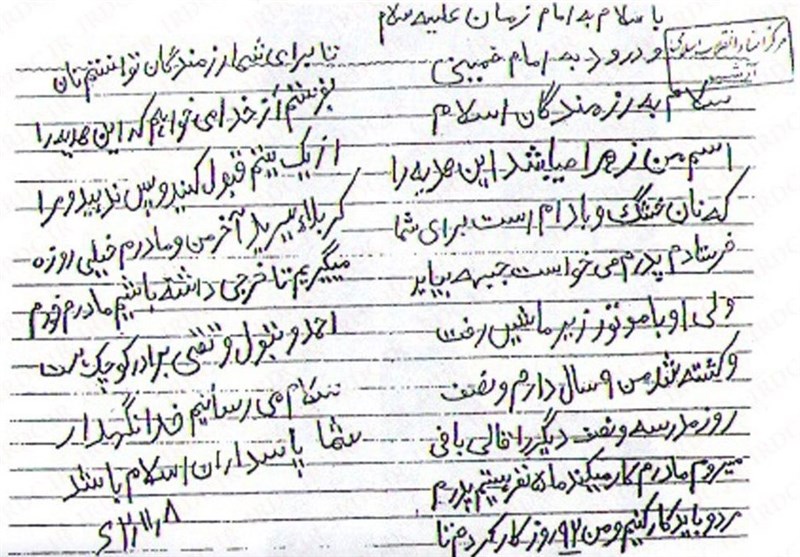 با سلام به امام زمان علیه سلام
و درود به امام خمینی
سلام به رزمندگان اسلام
اسم من زهرا میباشد این هدیه را
که نان خشک و بادام است برای شما
فرستادم پدرم می خواست جبهه بیاید
ولی او با موتور زیر ماشین رفت
و کشته شد من ۹ سال دارم و نصف
روز مدرسه و نصف دیگر را قالی بافی
میروم مادرم کار میکند ما ۵ نفر هستیم پدرم
مرد و باید کار کنیم و من ۹۲ روز کار کردم تا
تا برای شما رزمندگان توانستم نان
بفرستم از خدا می خواهم که این هدیه را
از یک یتیم قبول کنید و پس ندهید و مرا
کربلا ببرید آخر من و مادرم خیلی روزه
میگیریم تا خرجی داشته باشیم مادرم خودم
احمد و بتول و تقی برادر کوچک است
سلام می رسانیم خدا نگهدار
شما پاسداران اسلام باشد